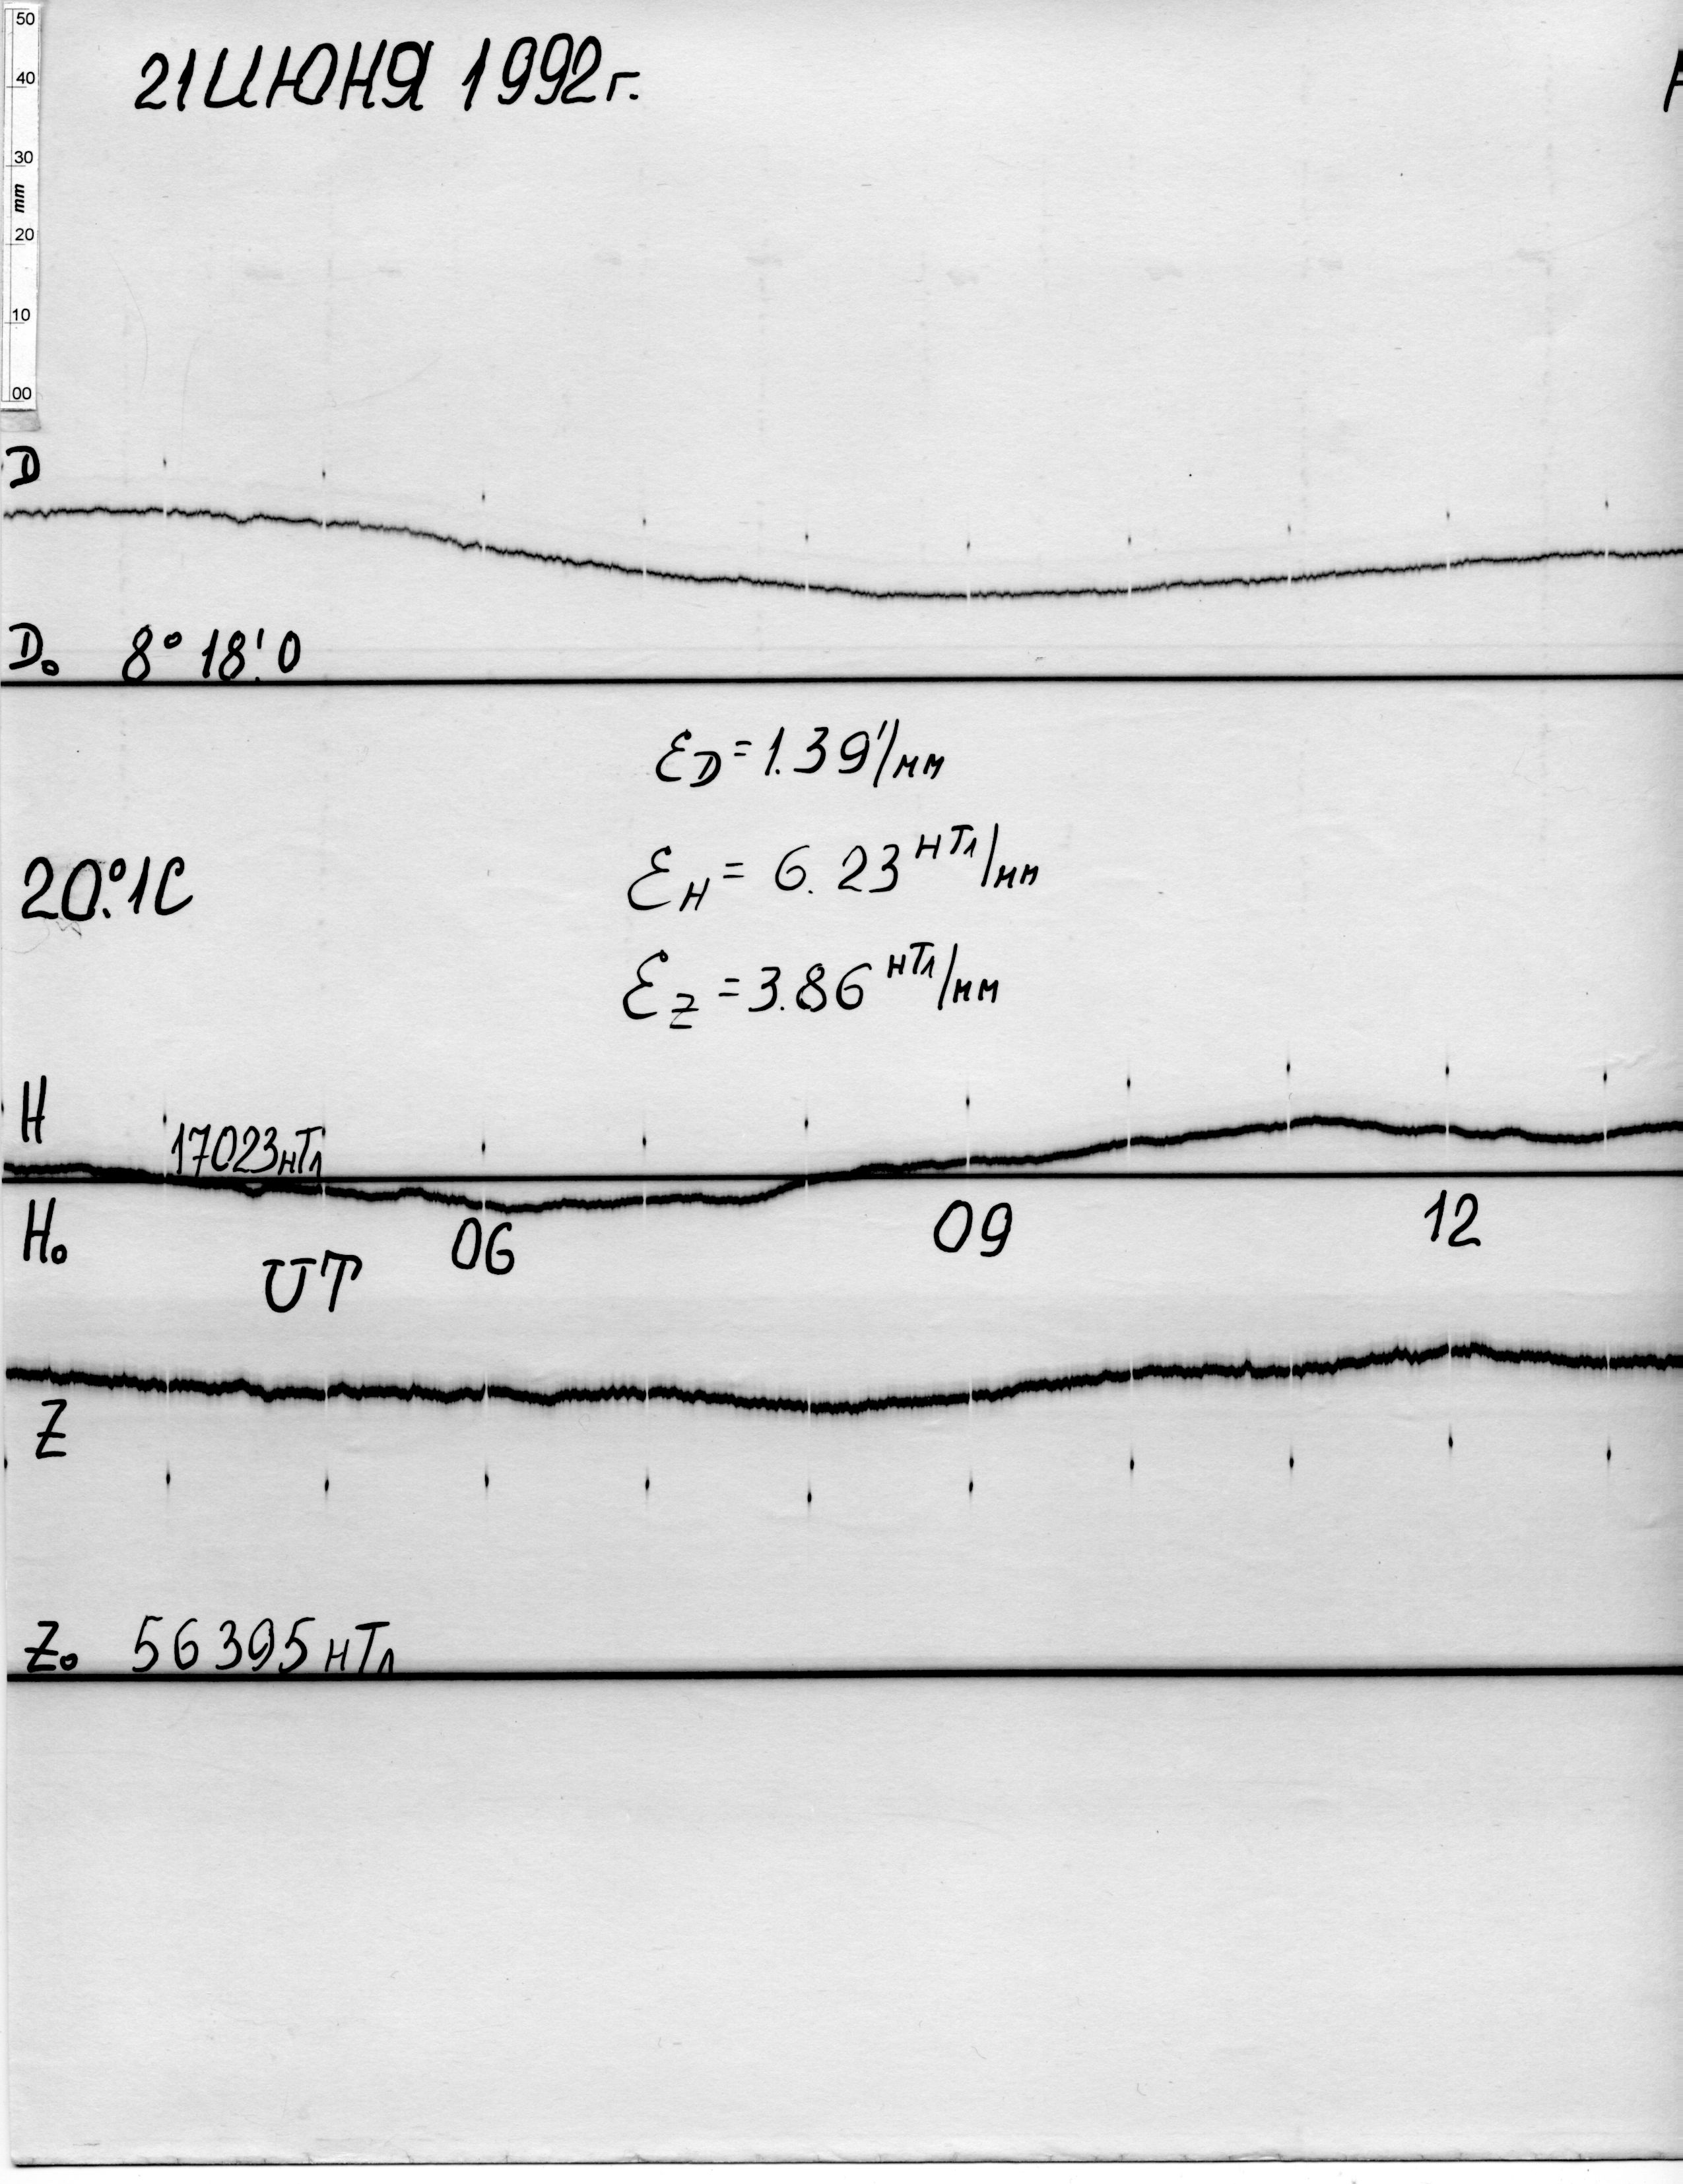 50
40
30
mm
20
10
00
21 ИЮНЯ 1992г.
D
D₀ 8° 18!0
ε_D = 1.39'/мм
20°.1C
ε_H = 6.23 нТл/мм
ε_Z = 3.86 нТл/мм
H
17023нТл
H₀
UT
06
09
12
Z
Z₀ 56395 нТл